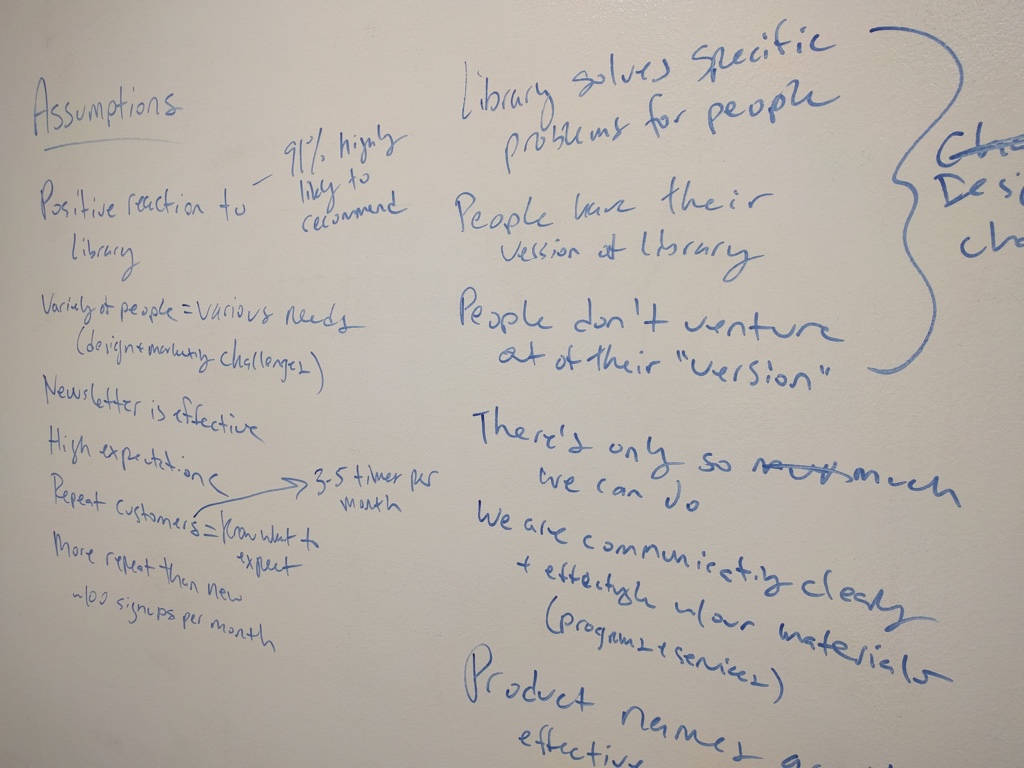 Assumptions
Positive reaction to
library
91% highly
likely to
recommend
Variety of people = various needs
(design + marketing challenges)
Newsletter is effective
High expectations
Repeat customers = know what to
expect
3-5 times per
month
More repeat than new
signups per month
Library solves specific
problems for people
People have their
version of library
People don't venture
out of their "version"
There's only so much
we can do
We are communicating clearly
+ effectively w/our materials
(programs + services)
Product names
effective